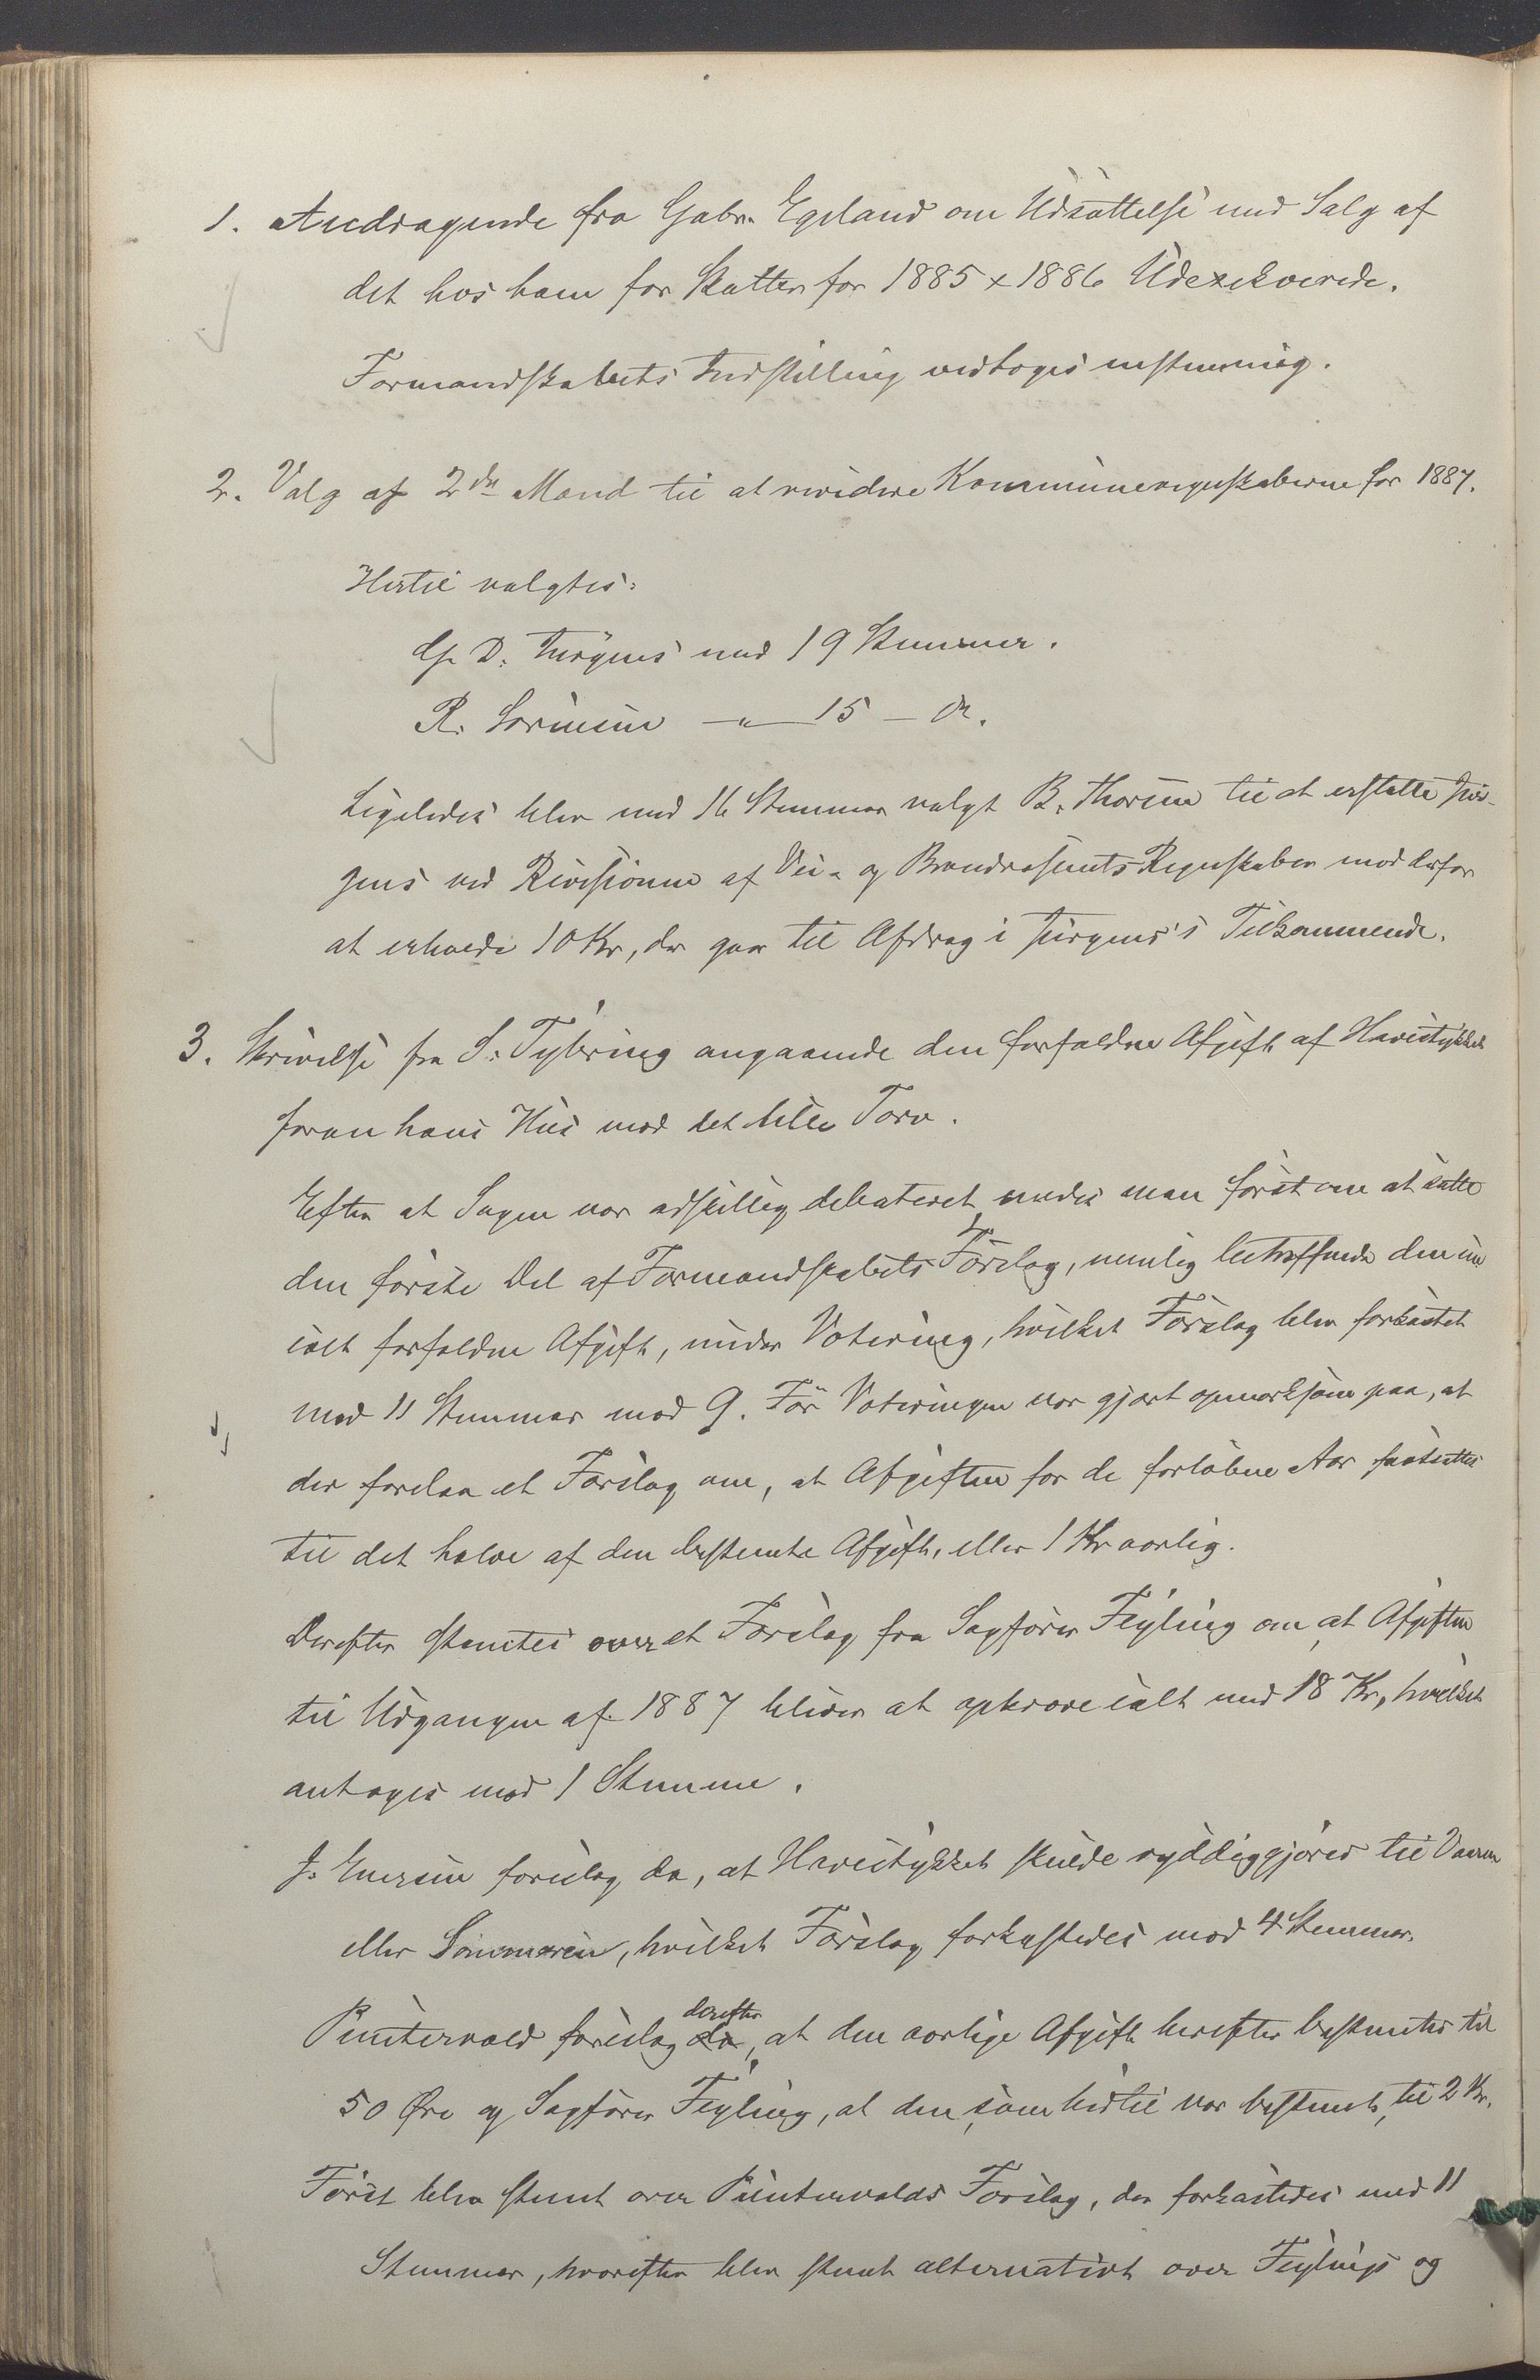 1. Andragende fra Gabr. Egeland om Udsættelse med Salg af
det hos ham for Skatten for 1885 & 1886 Udexekverede.
Formandskabets Indstilling vedtoges enstemmig.
2. Valg af 2de Mænd til at revidere Kommuneregnskaberne for 1887.
Hertil valgtes:
D. Jürgens med 19 Stemmer.
R. Sørensen — " — 15 — do.
Ligeledes blev med 16 Stemmer valgt B. Thorsen til at erstatte Jür-
gens ved Revisionen af Vei- og Brandvæsenets Regnskaber mod derfor
at erholde 10 Kr, der gaar til Afdrag i Jürgens's Tilkommende.
3. Skrivelse fra S. Tybring angaaende den forfaldne Afgift af Havestykket
foran hans Hus mod det lille Torv.
Efter at Sagen var adskillig debateret enedes man først om at sætte
den første Del af Formandskabets Forslag, nemlig betræffende den
ialt forfaldne Afgift, under Votering, hvilket Forslag blev forkastet
med 11 Stemmer mod 9. Før Voteringen var gjort opmærksom paa, at
der forelaa et Forslag om, at Afgiften for de forløbne Aar fastsættes
til det halve af den bestemte Afgift, eller 1 Kr aarlig.
Derefter stemtes over et Forslag fra Sagfører Feyling om at Afgiften
til Udgangen af 1887 bliver at opkræve ialt med 18 Kr, hvilket
antoges mod 1 Stemme.
J. Enersen foreslog da, at Havestykket skulde ryddiggjøres til Vaaren
eller Sommeren, hvilket Forslag forkastedes mod 4 Stemmer.
Puntervold foreslog da derefter, at den aarlige Afgift herefter bestemtes til
50 Øre og Sagfører Feyling, at den, som hidtil var bestemt, til 2 Kr.
Først blev stemt over Puntervolds Forslag, der forkastedes med 11
Stemmer, hvorefter blev stemt alternativt over Feylings og